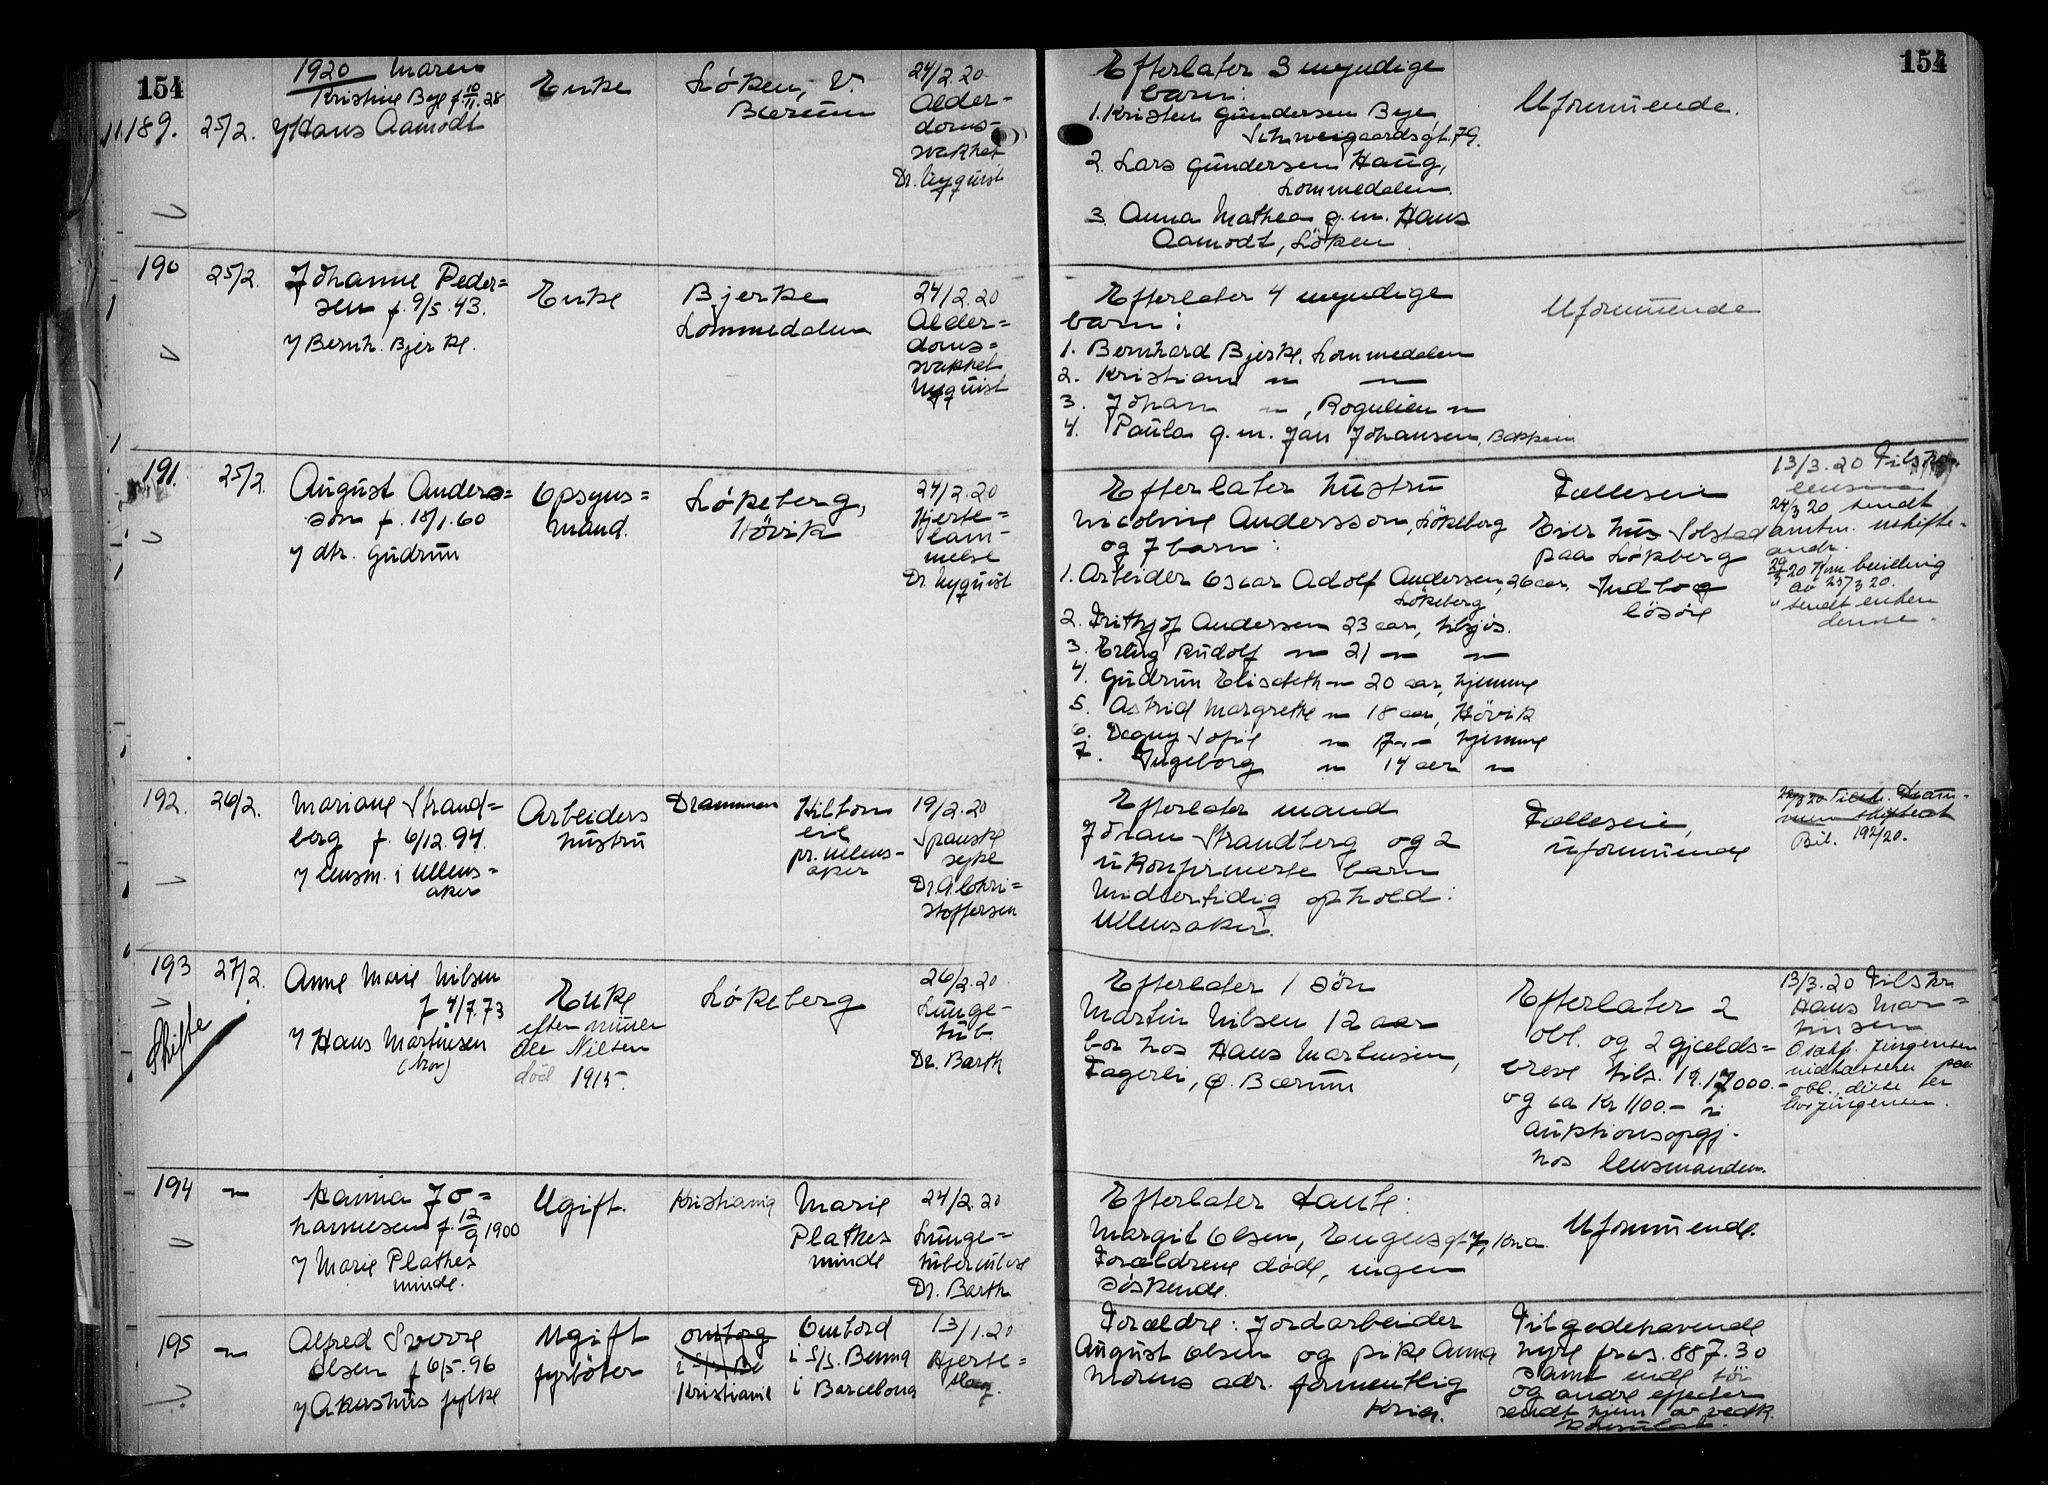 154
1920 Maren
Kristine Bye f. 10/11.28
189. 25/2. Hans Aamodt
Enke
Løken, V.
Bærum
24/2.20
Alder-
doms-
svakhet
Dr. Nyquist
Efterlater 3 myndige
barn:
1. Kristen Gundersen Bye,
Schweigaardsgt. 79.
2. Lars Gundersen Haug,
Lommedalen.
3. Anna Mathea g.m. Hans
Aamodt, Løken
Uformuende.
154
190 25/2. Johanne Peder=
sen f. 9/5.43.
Bernh. Bjerke.
Enke
Bjerke
Lommedalen
24/2.20
Alder=
doms=
svakhet
Nyquist
Efterlater 4 myndige
barn:
1. Bernhard Bjerke, Lommedalen
2. Kristian " "
3. Johan ", Rognlien "
4. Paula g.m. Jan Johansen, Bakken
Uformuende
191. 25/2. August Anders=
son f. 18/1.60
dtr. Gudrun
Opsyns=
mand.
Løkeberg,
Høvik
24/2.20
Hjerte=
lam-
melse
Dr. Nyquist
Efterlater hustru
Nicoline Andersson, Løkeberg
og 7 barn:
1. Arbeider Oscar Adolf Andersen, 26 aar,
Løkeberg
2. Frithjof Andersen 23 aar, tilsjøs.
3. Erling Rudolf " 21 " "
4. Gudrun Elisabeth " 20 aar, hjemme
5. Astrid Margrethe " 18 aar, Høvik
6. Dagny Sofie " 17 " hjemme
7. Ingeborg " 14 aar "
Fælleseie
Eier hus Solstad
paa Løkeberg
Indbo og
løsøre
13/3.20 Tilskr.
24/3 20 sendt
amtm. uskifte-
andr.
29/3 20 bevilling
av 25/3 20.
" sendt enken
denne.
192. 26/2. Mariane Strand=
berg f. 6/12.94.
lensm. i Ullens=
aker
Arbeiders
hustru
Drammen
pr. Ullens-
aker
19/2.20
Spanske
syke
Dr. A. Chri=
stoffersen
Efterlater mand
Johan Strandberg og 2
ukonfirmerte barn
Midlertidig ophold:
Ullensaker.
Fælleseie,
uformuende
22/3 20 Tilskr. Dram-
men skifteret
Bil. 192/20.
193 27/2. Anne Marie Nilsen
f 4/7.73
Hans Martinsen
(bror)
Skifte
Enke
efter
Nilsen
død 1915.
Løkeberg
26/2.20
Lunge-
tub.
Dr. Barth
Efterlater 1 søn
Martin Nilsen 12 aar
bor hos Hans Martinsen,
Fagerli, Ø. Bærum
Efterlater 2
obl. og 2 gjelds=
breve tils. 17000.-
og ca Kr 1100.- i
auktionsopgj.
hos lensmanden.
13/3.20 Tilskr.
Hans Mar=
tinsen
Jürgensen
paa
obl., disse er
hos Jürgensen.
194 " Hanna Jo=
hannesen f. 12/9 1900
Marie Plathes
minde.
Ugift.
Kristiania
Marie
Plathes
minde
24/2.20
Lunge=
tuberculose
Dr. Barth
Efterlater tante:
Margit Olsen, Enggs gt. 7, Kria
Forældrene døde, ingen
søskende.
Uformuende.
195 " Alfred Sverre
Olsen f 6/5.96
Akershus fylke
Ugift
fyrbøter
Kristiania
Ombord
i S/S. Benna
i Barcelona
13/1.20
Hjerte=
slag.
Forældre: Jordarbeider
August Olsen og pike Anna
Moens adr. formentlig
Kria.
Tilgodehavende
hyre frcs. 887.30
samt endel tøi
og andre effecter
sendt hjem av vedk.
konsulat.